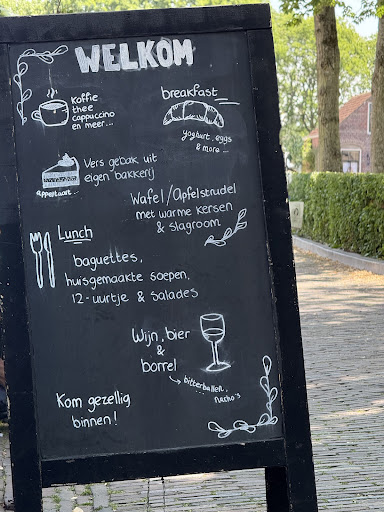 WELKOM
Koffie
thee
cappuccino
en meer...
breakfast
yoghurt, eggs
& more...
Vers gebak uit
eigen bakkerij
appeltaart...
Wafel/Apfelstrudel
met warme kersen
& slagroom
Lunch
baguettes,
huisgemaakte soepen,
12-uurtje & salades
Wijn, bier
&
borrel
bitterballen,
nacho's
Kom gezellig
binnen!